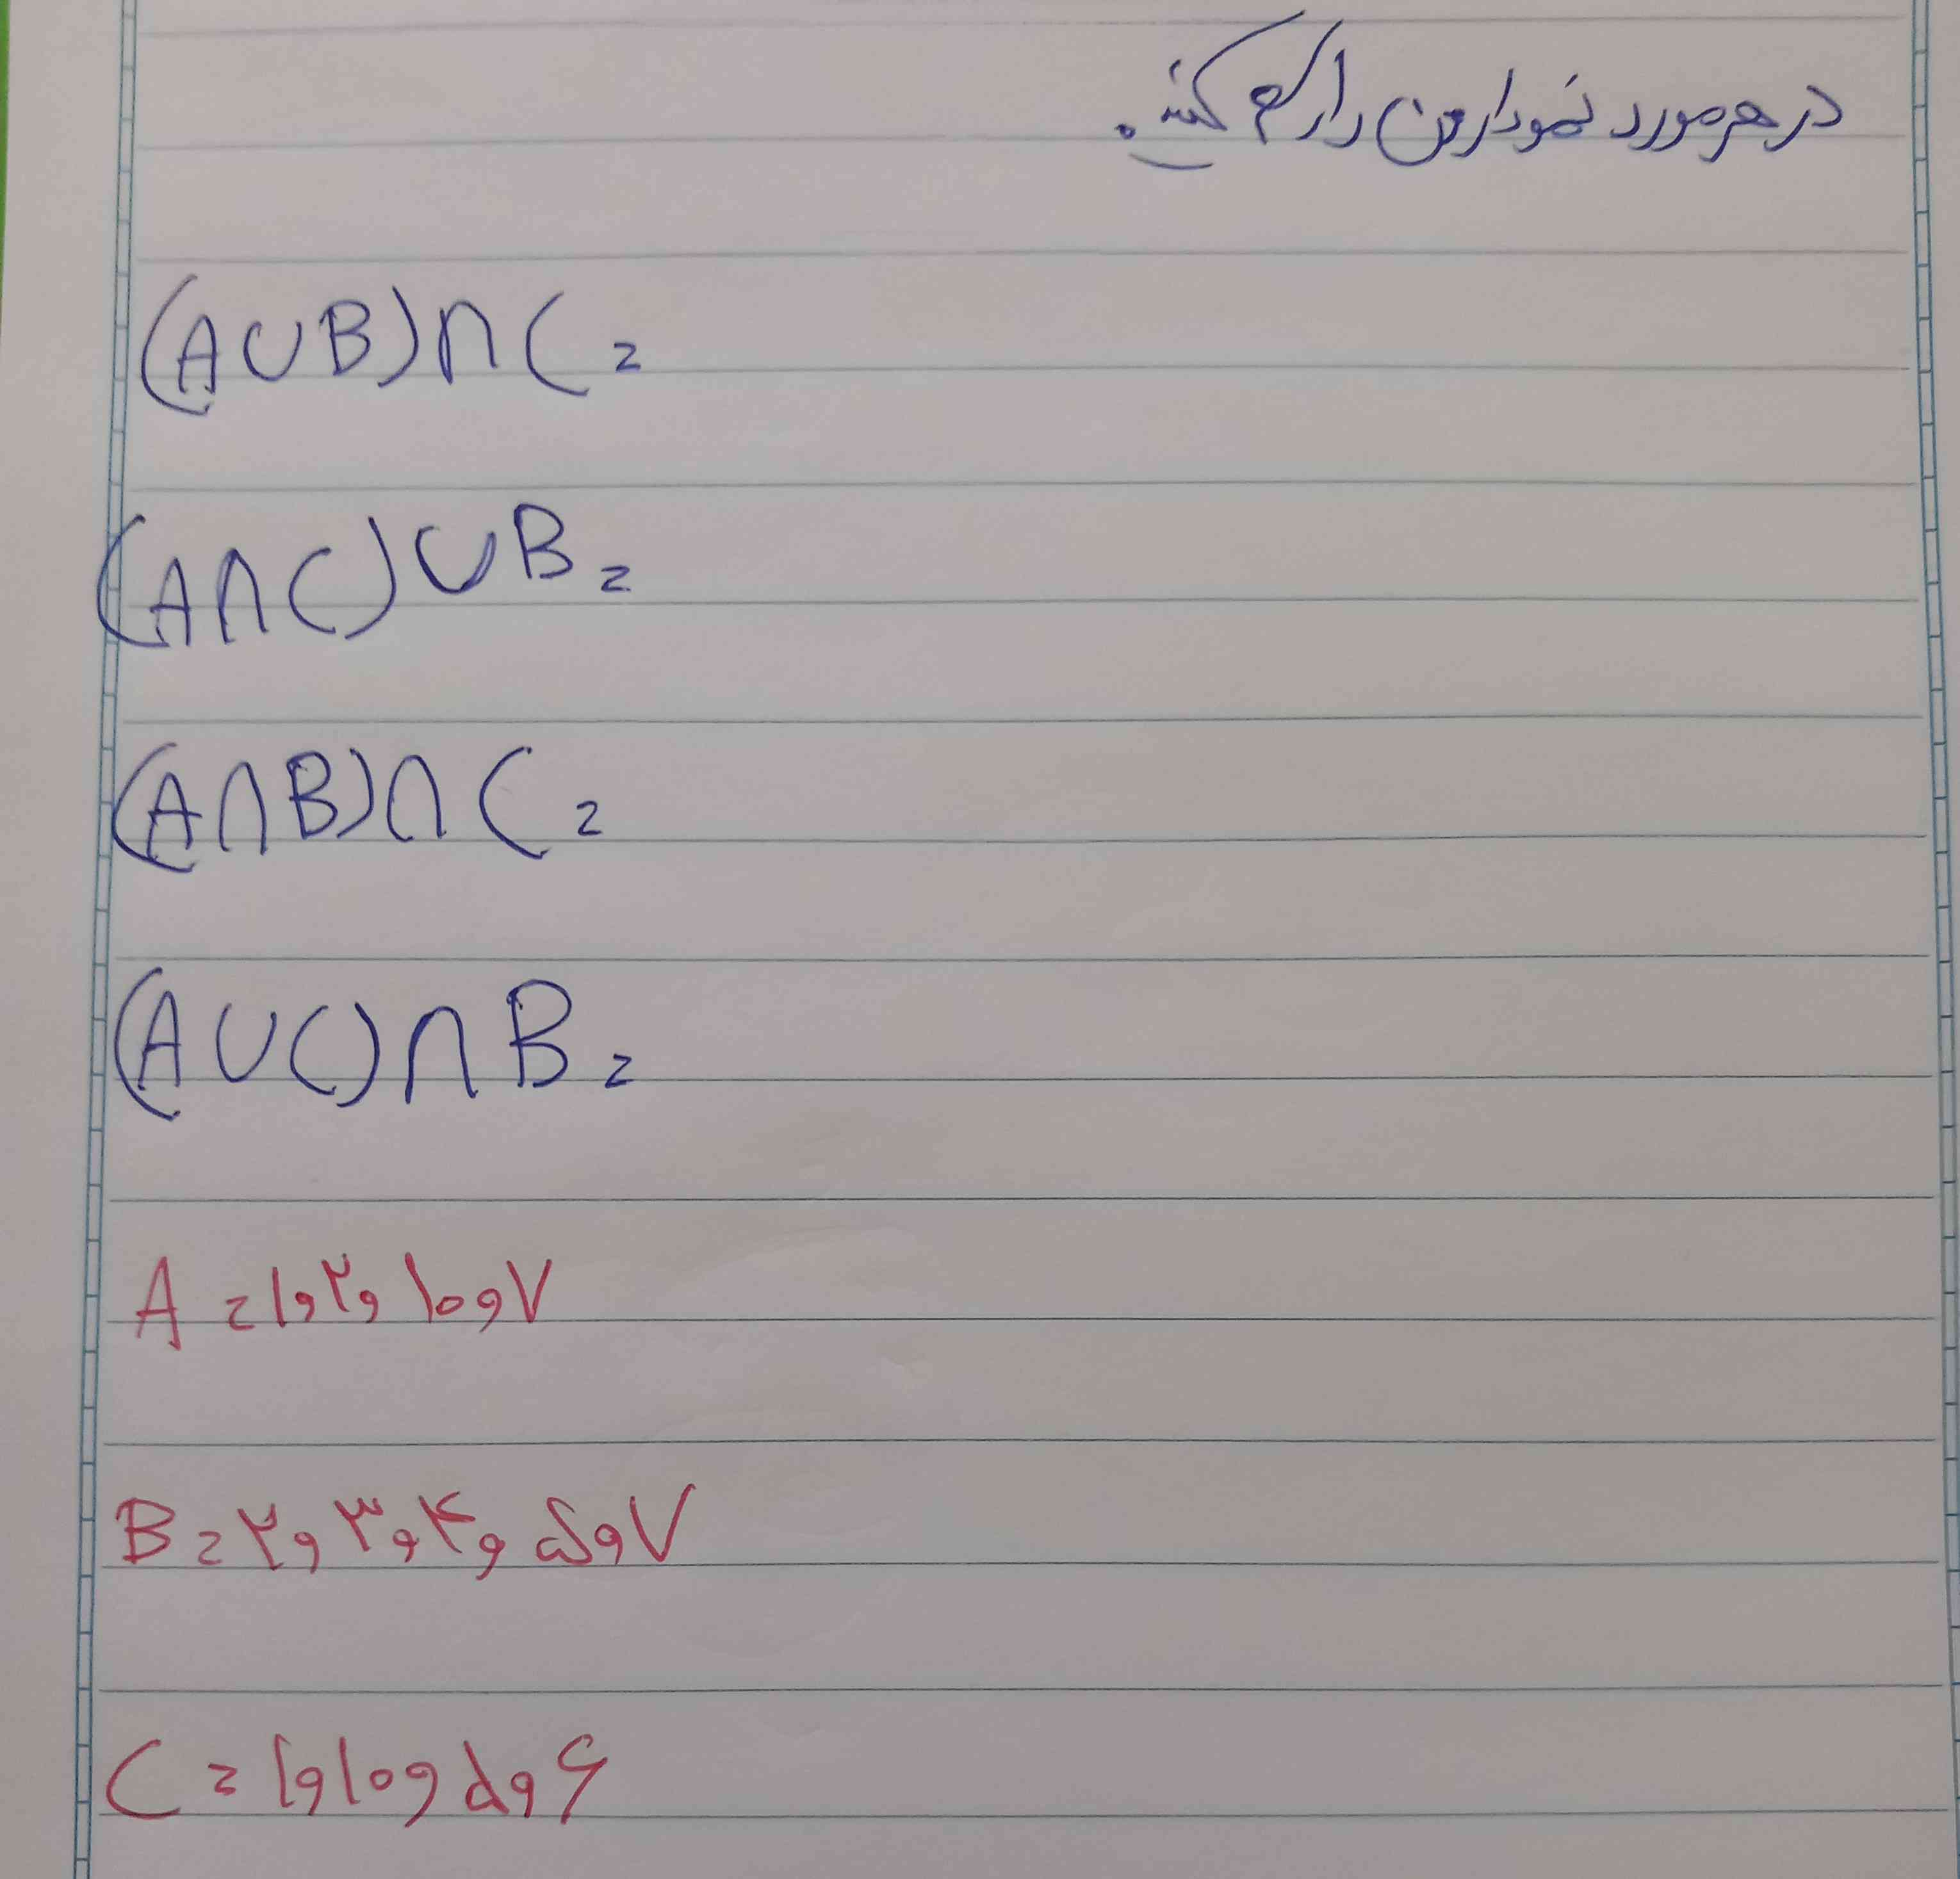 در هر مورد نمودار ون را رسم کنید.
(A∪B)∩C =
(A∩C)∪B =
(A∩B)∩C =
(A∪C)∩B =
A = ۱و۲و۱۰و۷
B = ۲و۳و۴و۵و۷
C = ۱و۱۰و۵و۶